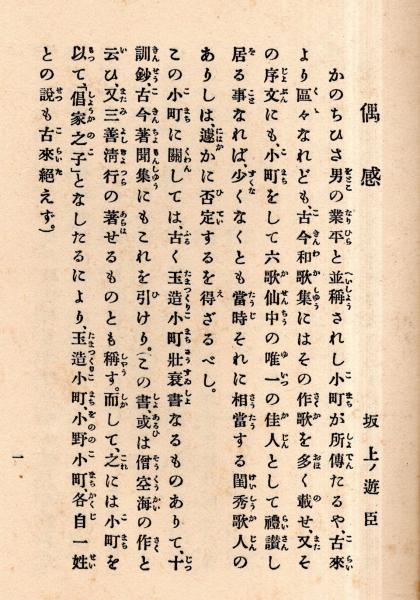 偶感
坂上ノ遊臣
かのちひさ男の業平と並稱されし小町が所傳たるや、古來
より區々なれども、古今和歌集にはその作歌を多く載せ、又そ
の序文にも、小町をして六歌仙中の唯一の佳人として禮讃し
居る事なれば、少くなくとも當時それに相當する閨秀歌人の
ありしは、遽かに否定するを得ざるべし。
この小町に關しては、古く玉造小町壯衰書なるものありて、十
訓鈔、古今著聞集にもこれを引けり。(この書、或は僧空海の作と
云ひ、又三善淸行の著せるものとも稱す。而して、之には小町を
以て「倡家之子」となしたるにより、玉造小町小野小町、各自一姓
との說も古來絕えず。)
一